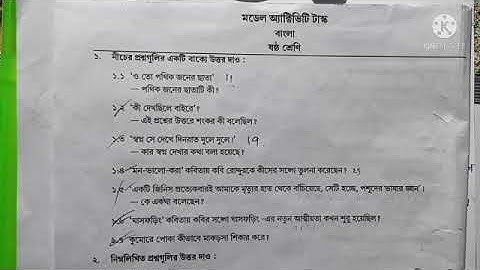 মডেল অ্যাক্টিভিটি টাস্ক
বাংলা
ষষ্ঠ শ্রেণি
১. নীচের প্রশ্নগুলির একটি বাক্যে উত্তর দাও :
১.১ 'ও তো পথিক জনের ছাতা'
— পথিক জনের ছাতাটি কী?
১.২ 'কী দেখছিলে বাইরে'?
— এই প্রশ্নের উত্তরে শংকর কী বলেছিল?
১.৩ 'স্বপ্ন সে দেখে দিনরাত দুলে দুলে।'
— কার স্বপ্ন দেখার কথা বলা হয়েছে?
১.৪ 'মন-ভালো-করা' কবিতায় কবি রোদ্দুরকে কীসের সঙ্গে তুলনা করেছেন?
১.৫ 'একটি জিনিস প্রত্যেকবারই আমাকে মৃত্যুর হাত থেকে বাঁচিয়েছে, সেটি হচ্ছে, পশুদের ভাষার জ্ঞান'।
— কে একথা বলেছেন?
১.৬ 'ঘাসফড়িং' কবিতায় কবির সঙ্গে ঘাসফড়িং -এর নতুন আত্মীয়তা কখন শুরু হয়েছিল?
১.৭ কুমোরে পোকা কীভাবে মাকড়সা শিকার করে?
২. নিম্নলিখিত প্রশ্নগুলির উত্তর দাও :